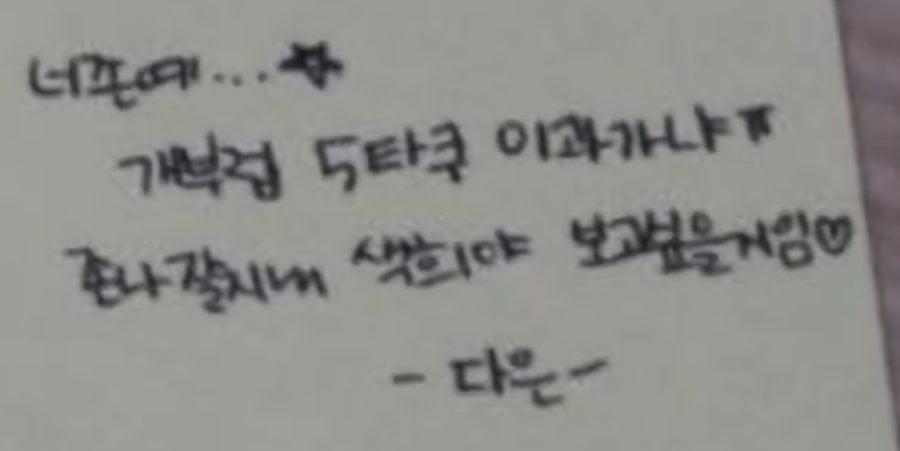 너존예...☆
개부럽 5타쿠 이과가냐ㅠ
존나잘지내 색희야 보고싶을거임♡
- 다은 -